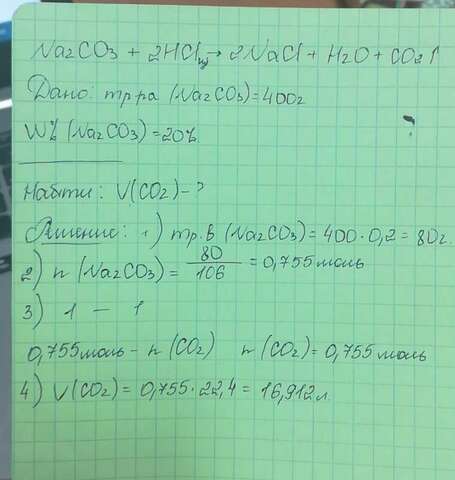 Na2CO3 + 2HCl → 2NaCl + H2O + CO2↑
Дано: mр.ра (Na2CO3)=400г
W% (Na2CO3)=20%
?
Найти: V(CO2)-?
Решение: 1) mр.в (Na2CO3) = 400·0,2 = 80г.
2) n (Na2CO3) = 80/106 = 0,755 моль
3) 1 — 1
0,755 моль - n (CO2) n (CO2) = 0,755 моль
4) V(CO2) = 0,755·22,4 = 16,912 л.